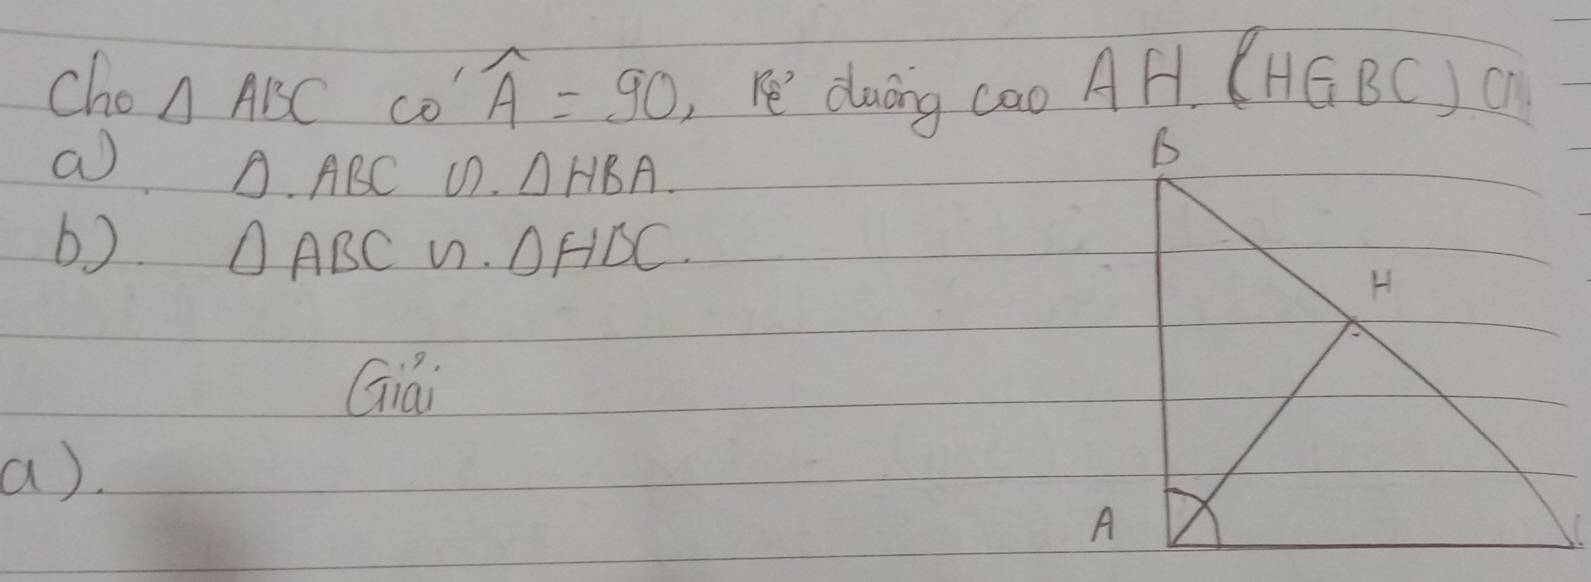 Cho Δ ABC có Â = 90, kẻ đường cao AH. (H∈BC) CM
a) Δ. ABC ∽. Δ HBA.
b). Δ ABC ∽. Δ HBC.
Giải
a).
B
H
A
C